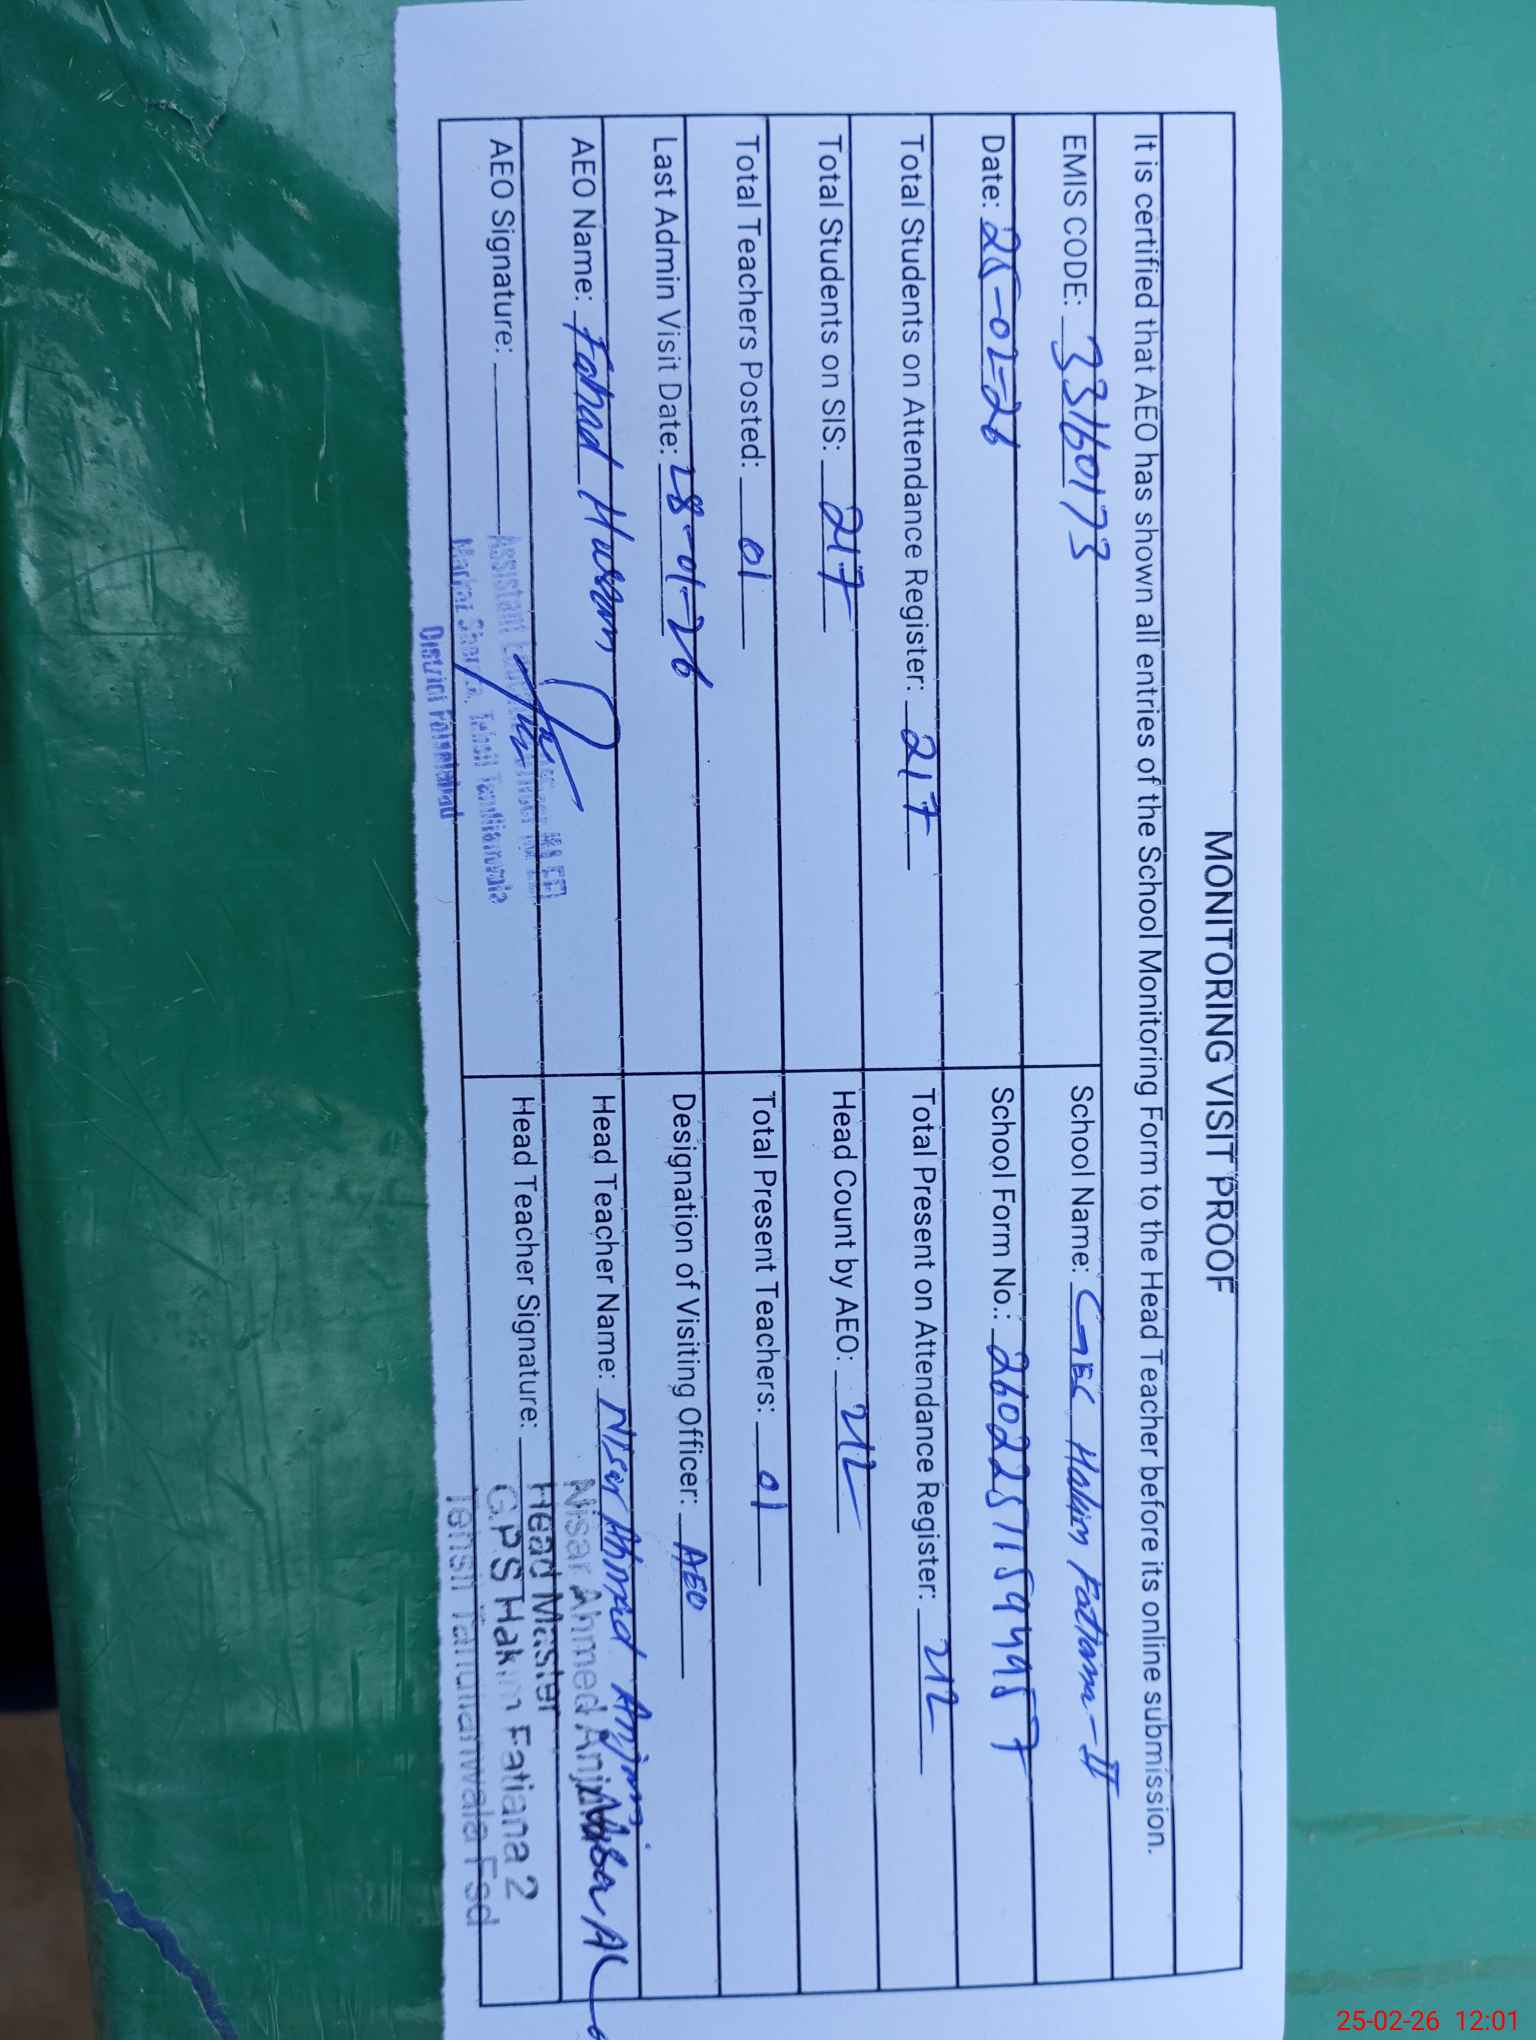 MONITORING VISIT PROOF
It is certified that AEO has shown all entries of the School Monitoring Form to the Head Teacher before its online submission.
EMIS CODE: 33160173
School Name: GES Hakim Fatiana-II
Date: 25-02-26
School Form No.:
Total Students on Attendance Register: 217
Total Present on Attendance Register: 212
Total Students on SIS: 217
Head Count by AEO: 212
Total Teachers Posted: 01
Total Present Teachers: 01
Last Admin Visit Date: 28-01-26
Designation of Visiting Officer: AEO
AEO Name: Fahad Hussain
Head Teacher Name: Nisar Ahmad Anjum
AEO Signature:
Assistant
Markaz Tehsil Tandlianwala
District Faisalabad
Head Teacher Signature:
Nisar Ahmed
Head Master
G.P.S Hakim Fatiana 2
Tehsil Tandlianwala Fsd
25-02-26 12:01